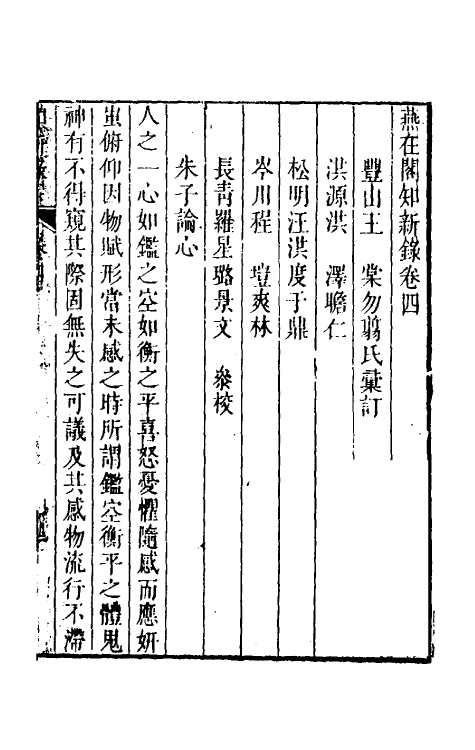 燕在閣知新錄卷四
豐山王　棠勿翦氏彙訂
洪源洪　澤瞻仁
松明汪洪度于鼎
岑川程　塏爽林
長青羅星璐景文　參校
朱子論心
人之一心如鑑之空如衡之平喜怒憂懼隨感而應妍
蚩俯仰因物賦形當未感之時所謂鑑空衡平之體鬼
神有不得窺其際固無失之可議及其感物流行不滯